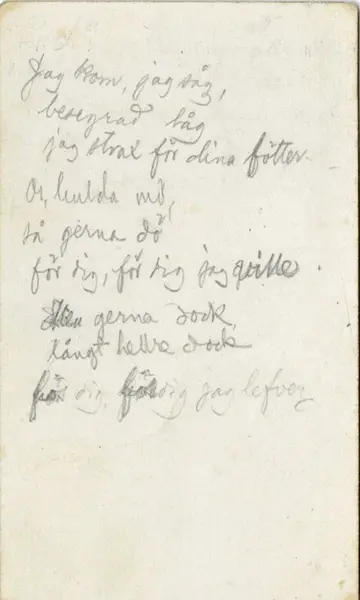 Jag kom, jag såg,
besegrad låg
jag strax för dina fötter.
O, hulda mö,
så gerna dö
för dig, för dig jag ville.
Men gerna dock,
långt hellre dock
för dig, för dig jag lefver